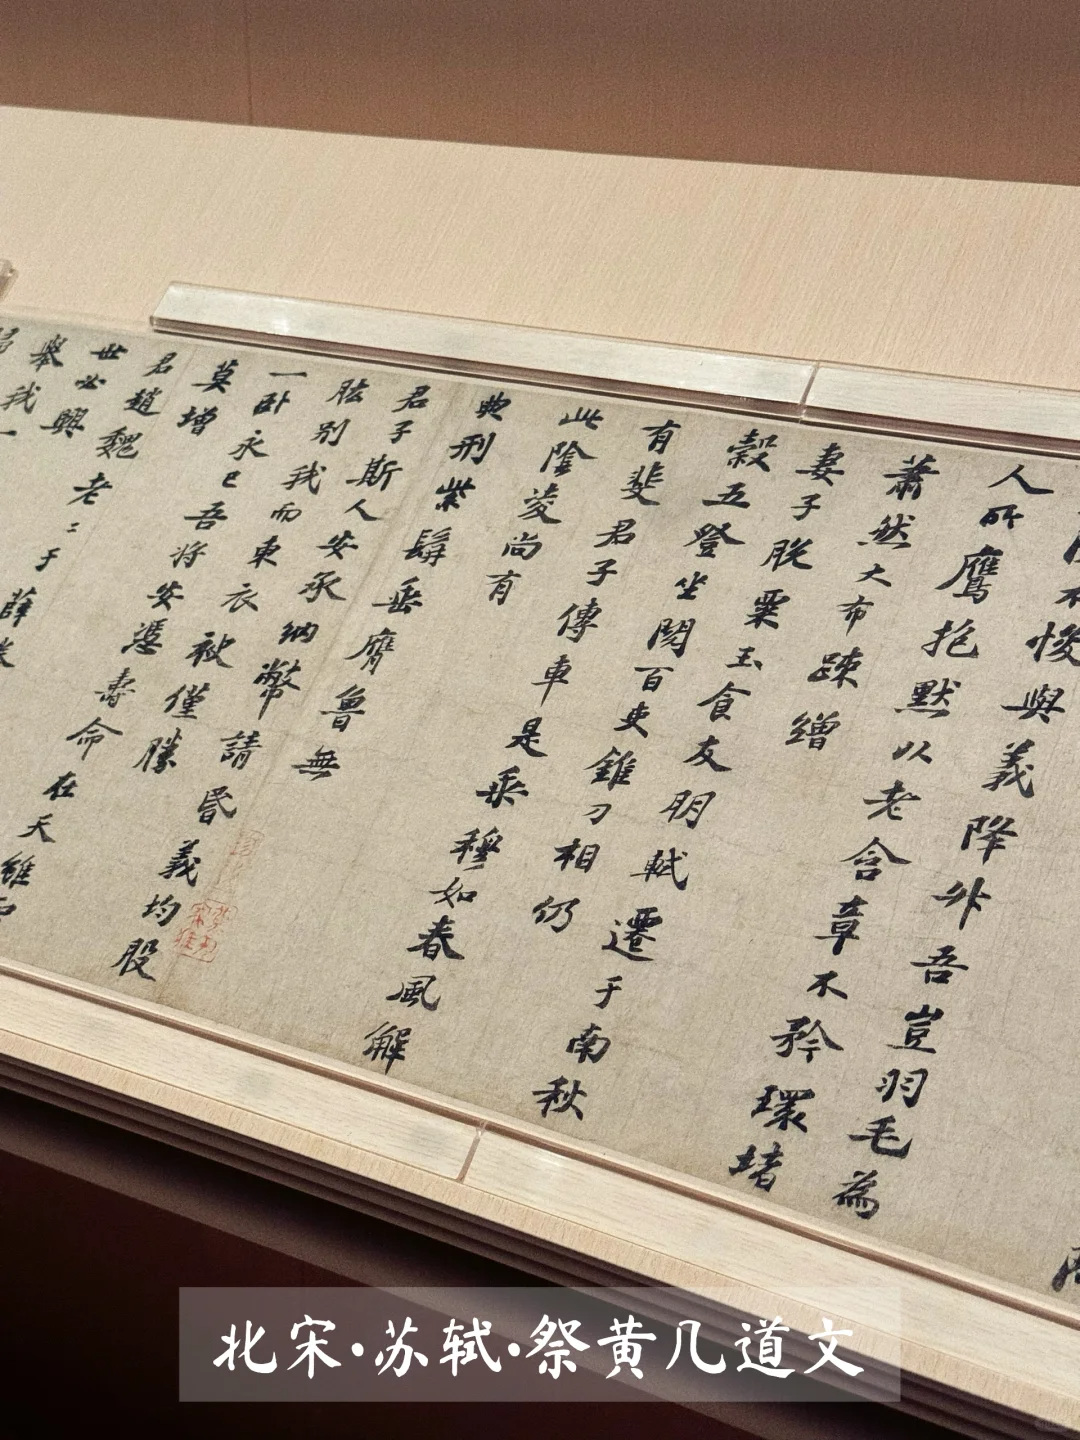 不悛與義降升吾豈羽毛為
人所鷹抱默以老含章不矜環堵
蕭然大布踈繒
妻子脫粟玉食友朋軾遷于南秋
穀五登坐閱百吏錐刀相仍
有斐君子傳車是乘穆如春風解
此陰凌尚有
典刑紫髯垂膺魯無
君子斯人安承納幣請昏義均股
肱別我而東衣袂僅勝
一卧永已吾將安憑壽命在天維
莫增
君趙魏老〻于薛
世必興
舉我一
北宋·苏轼·祭黄几道文